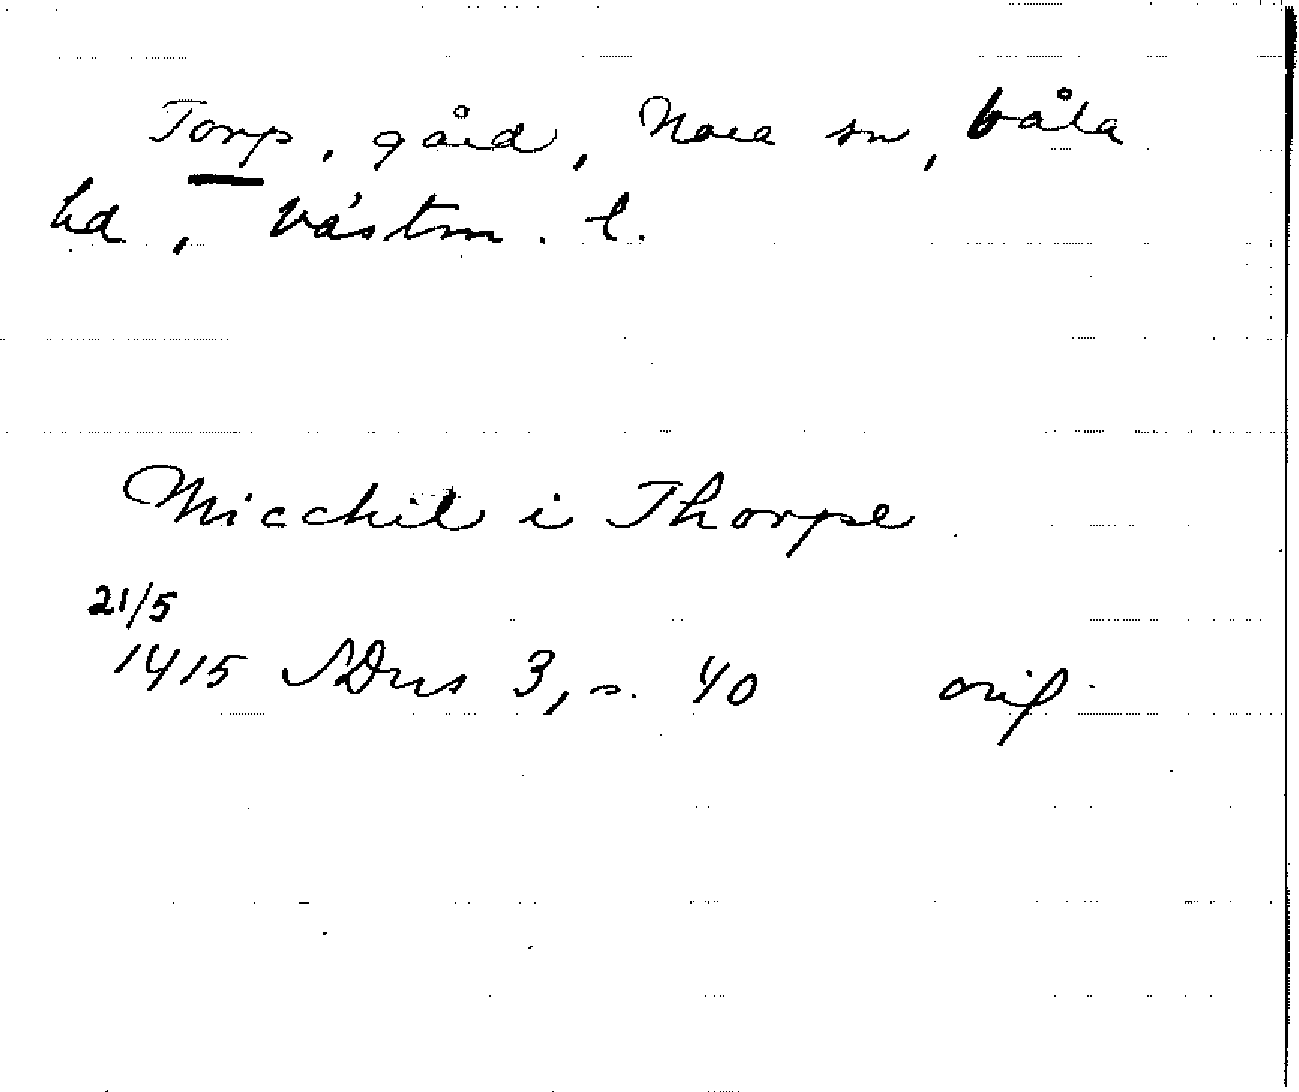 Torp, gård, Nora sn, Våla
hd, Västm. l.
Micchil i Thorpe
21/5
1415 SDns 3, s. 40 orig.